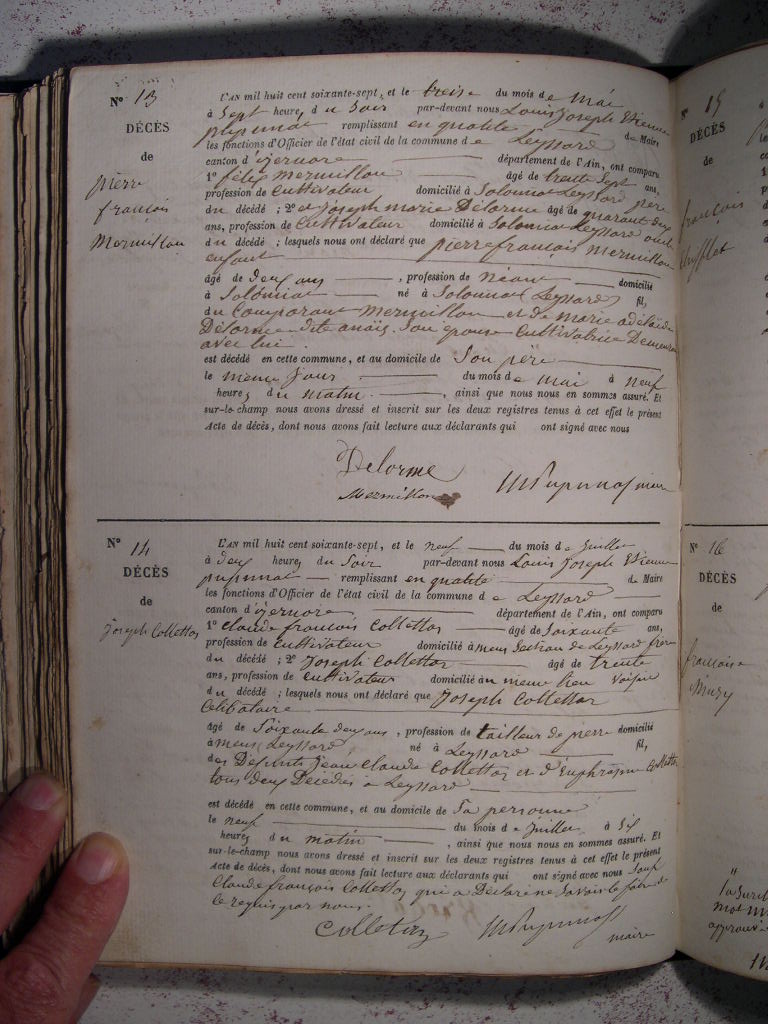 N° 13
DÉCÈS
de
pierre
françois
Mermillon
L'AN mil huit cent soixante-sept, et le treize du mois de Mai
à Sept heures du Soir par-devant nous Louis Joseph Etienne
pupunat remplissant en qualité de Maire
les fonctions d'Officier de l'état civil de la commune de Leyssard
canton d'izernore département de l'Ain, ont comparu
1° félix Mermillon âgé de trente Sept ans,
profession de Cultivateur domicilié à Solomiat Leyssard père
du décédé ; 2° et Joseph marie Delorme âgé de quarant deux
ans, profession de Cultivateur domicilié à Solomiat Leyssard oncle
du décédé ; lesquels nous ont déclaré que pierre françois Mermillon
enfant
âgé de Deux ans , profession de Néant domicilié
à Solomiat né à Solomiat Leyssard fil,
du Comparant Mermillon et de marie adélaïde
Delorme dite anaïs, Son épouse Cultivatrice Demeurant
avec lui.
est décédé en cette commune, et au domicile de Son père
le même Jour du mois de mai à neuf
heures du matin , ainsi que nous nous en sommes assuré. Et
sur-le-champ nous avons dressé et inscrit sur les deux registres tenus à cet effet le présent
Acte de décès, dont nous avons fait lecture aux déclarants qui ont signé avec nous
Delorme
Mermillon
Pupunat maire
N° 14
DÉCÈS
de
Joseph Collettaz
L'AN mil huit cent soixante-sept, et le neuf du mois de Juillet
à Deux heures du Soir par-devant nous Louis Joseph Etienne
pupunat remplissant en qualité de Maire
les fonctions d'Officier de l'état civil de la commune de Leyssard
canton d'izernore département de l'Ain, ont comparu
1° Claude françois Collettaz âgé de Soixante ans,
profession de Cultivateur domicilié à mens Section de Leyssard frère
du décédé ; 2° Joseph Collettaz âgé de trente
ans, profession de Cultivateur domicilié au même lieu voisin
du décédé ; lesquels nous ont déclaré que Joseph Collettaz
Célibataire
âgé de Soixante deux ans , profession de tailleur de pierre domicilié
à mens, Leyssard né à Leyssard fil,
des Défunts Jean Claude Collettaz et d'Euphrasine Collettaz
tous deux Décédés à Leyssard
est décédé en cette commune, et au domicile de Sa personne
le neuf du mois de Juillet à Six
heures du matin , ainsi que nous nous en sommes assuré. Et
sur-le-champ nous avons dressé et inscrit sur les deux registres tenus à cet effet le présent
Acte de décès, dont nous avons fait lecture aux déclarants qui ont signé avec nous Sauf
Claude françois Collettaz qui a Déclaré ne Savoir le faire de
ce requis par nous.
Colletaz
Pupunat
maire
N° 15
DÉCÈS
de
françois
N° 16
DÉCÈS
de
françoise